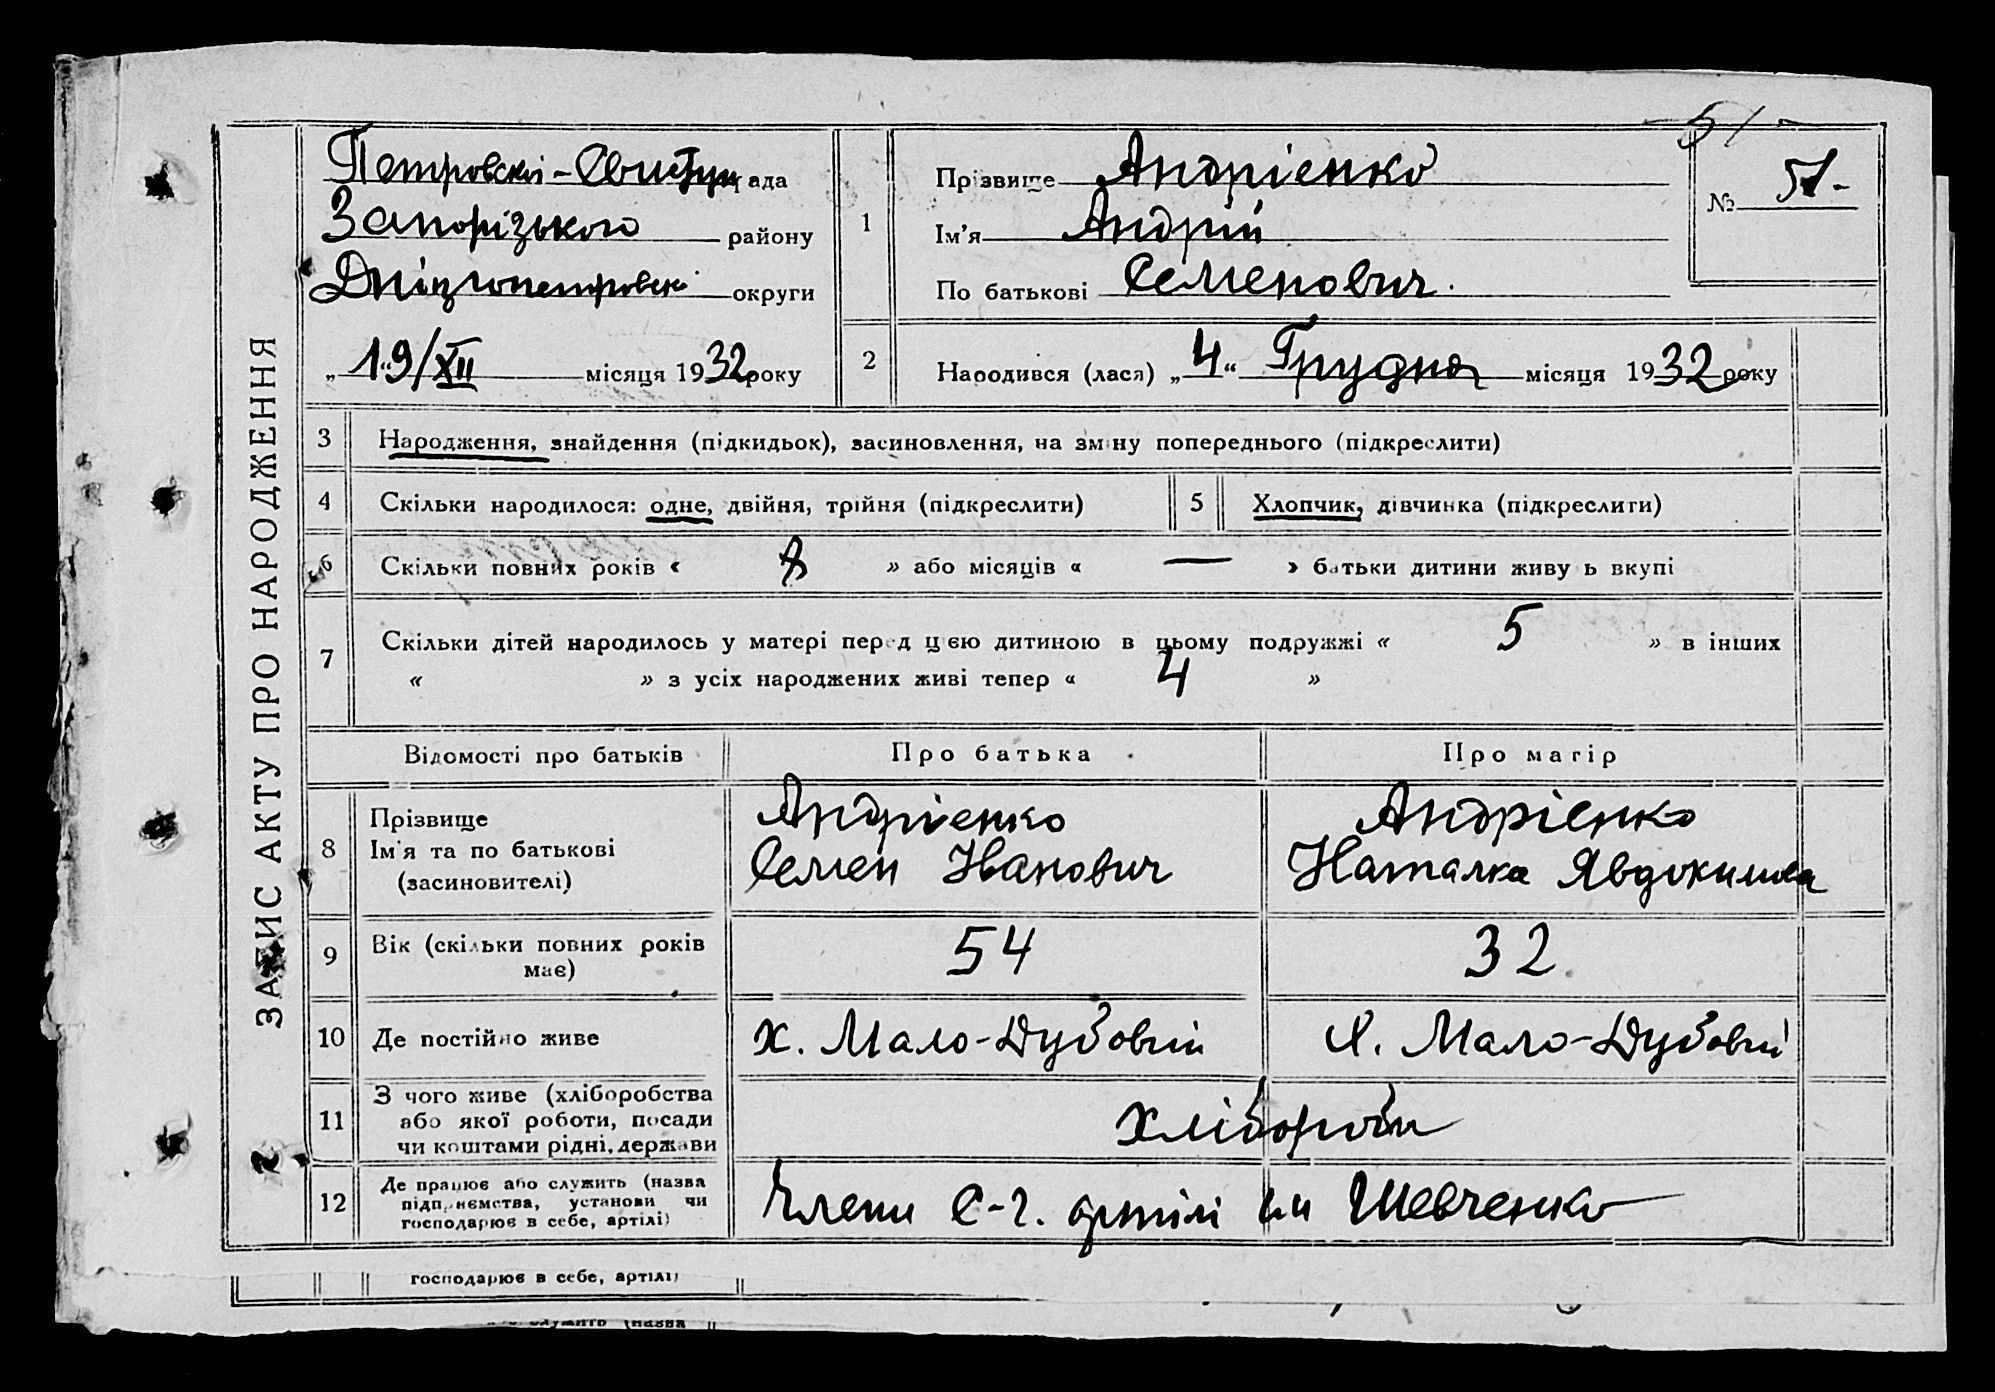 51
Петровскі-Свистун рада
Запорізького району
Дніпропетровські округи
„19/XII місяця 1932 року
1
Прізвище Андріенко
Ім’я Андрій
По батькові Семенович.
№ 51-
2
Народився (лася) „4“ Грудня місяця 1932 року
ЗАПИС АКТУ ПРО НАРОДЖЕННЯ
3 Народження, знайдення (підкидьок), засиновлення, на зміну попереднього (підкреслити)
4 Скільки народилося: одне, двійня, трійня (підкреслити) 5 Хлопчик, дівчинка (підкреслити)
6 Скільки повних років « 8 » або місяців « — » батьки дитини живуть вкупі
7 Скільки дітей народилось у матері перед цією дитиною в цьому подружжі « 5 » в інших
« » з усіх народжених живі тепер « 4 »
Відомості про батьків Про батька Про матір
8 Прізвище Ім’я та по батькові (засиновителі)
Андріенко
Семен Іванович
Андріенко
Наталка Явдокимова
9 Вік (скільки повних років має) 54 32
10 Де постійно живе х. Мало-Дубовий х. Мало-Дубовий
11 З чого живе (хліборобства
або якої роботи, посади
чи коштами рідні, держави
Хлібороби
12 Де працює або служить (назва
підприємства, установи чи
господарює в себе, артілі)
Члени С-г. артілі ім Шевченко
господарює в себе, артілі)
служить (назва